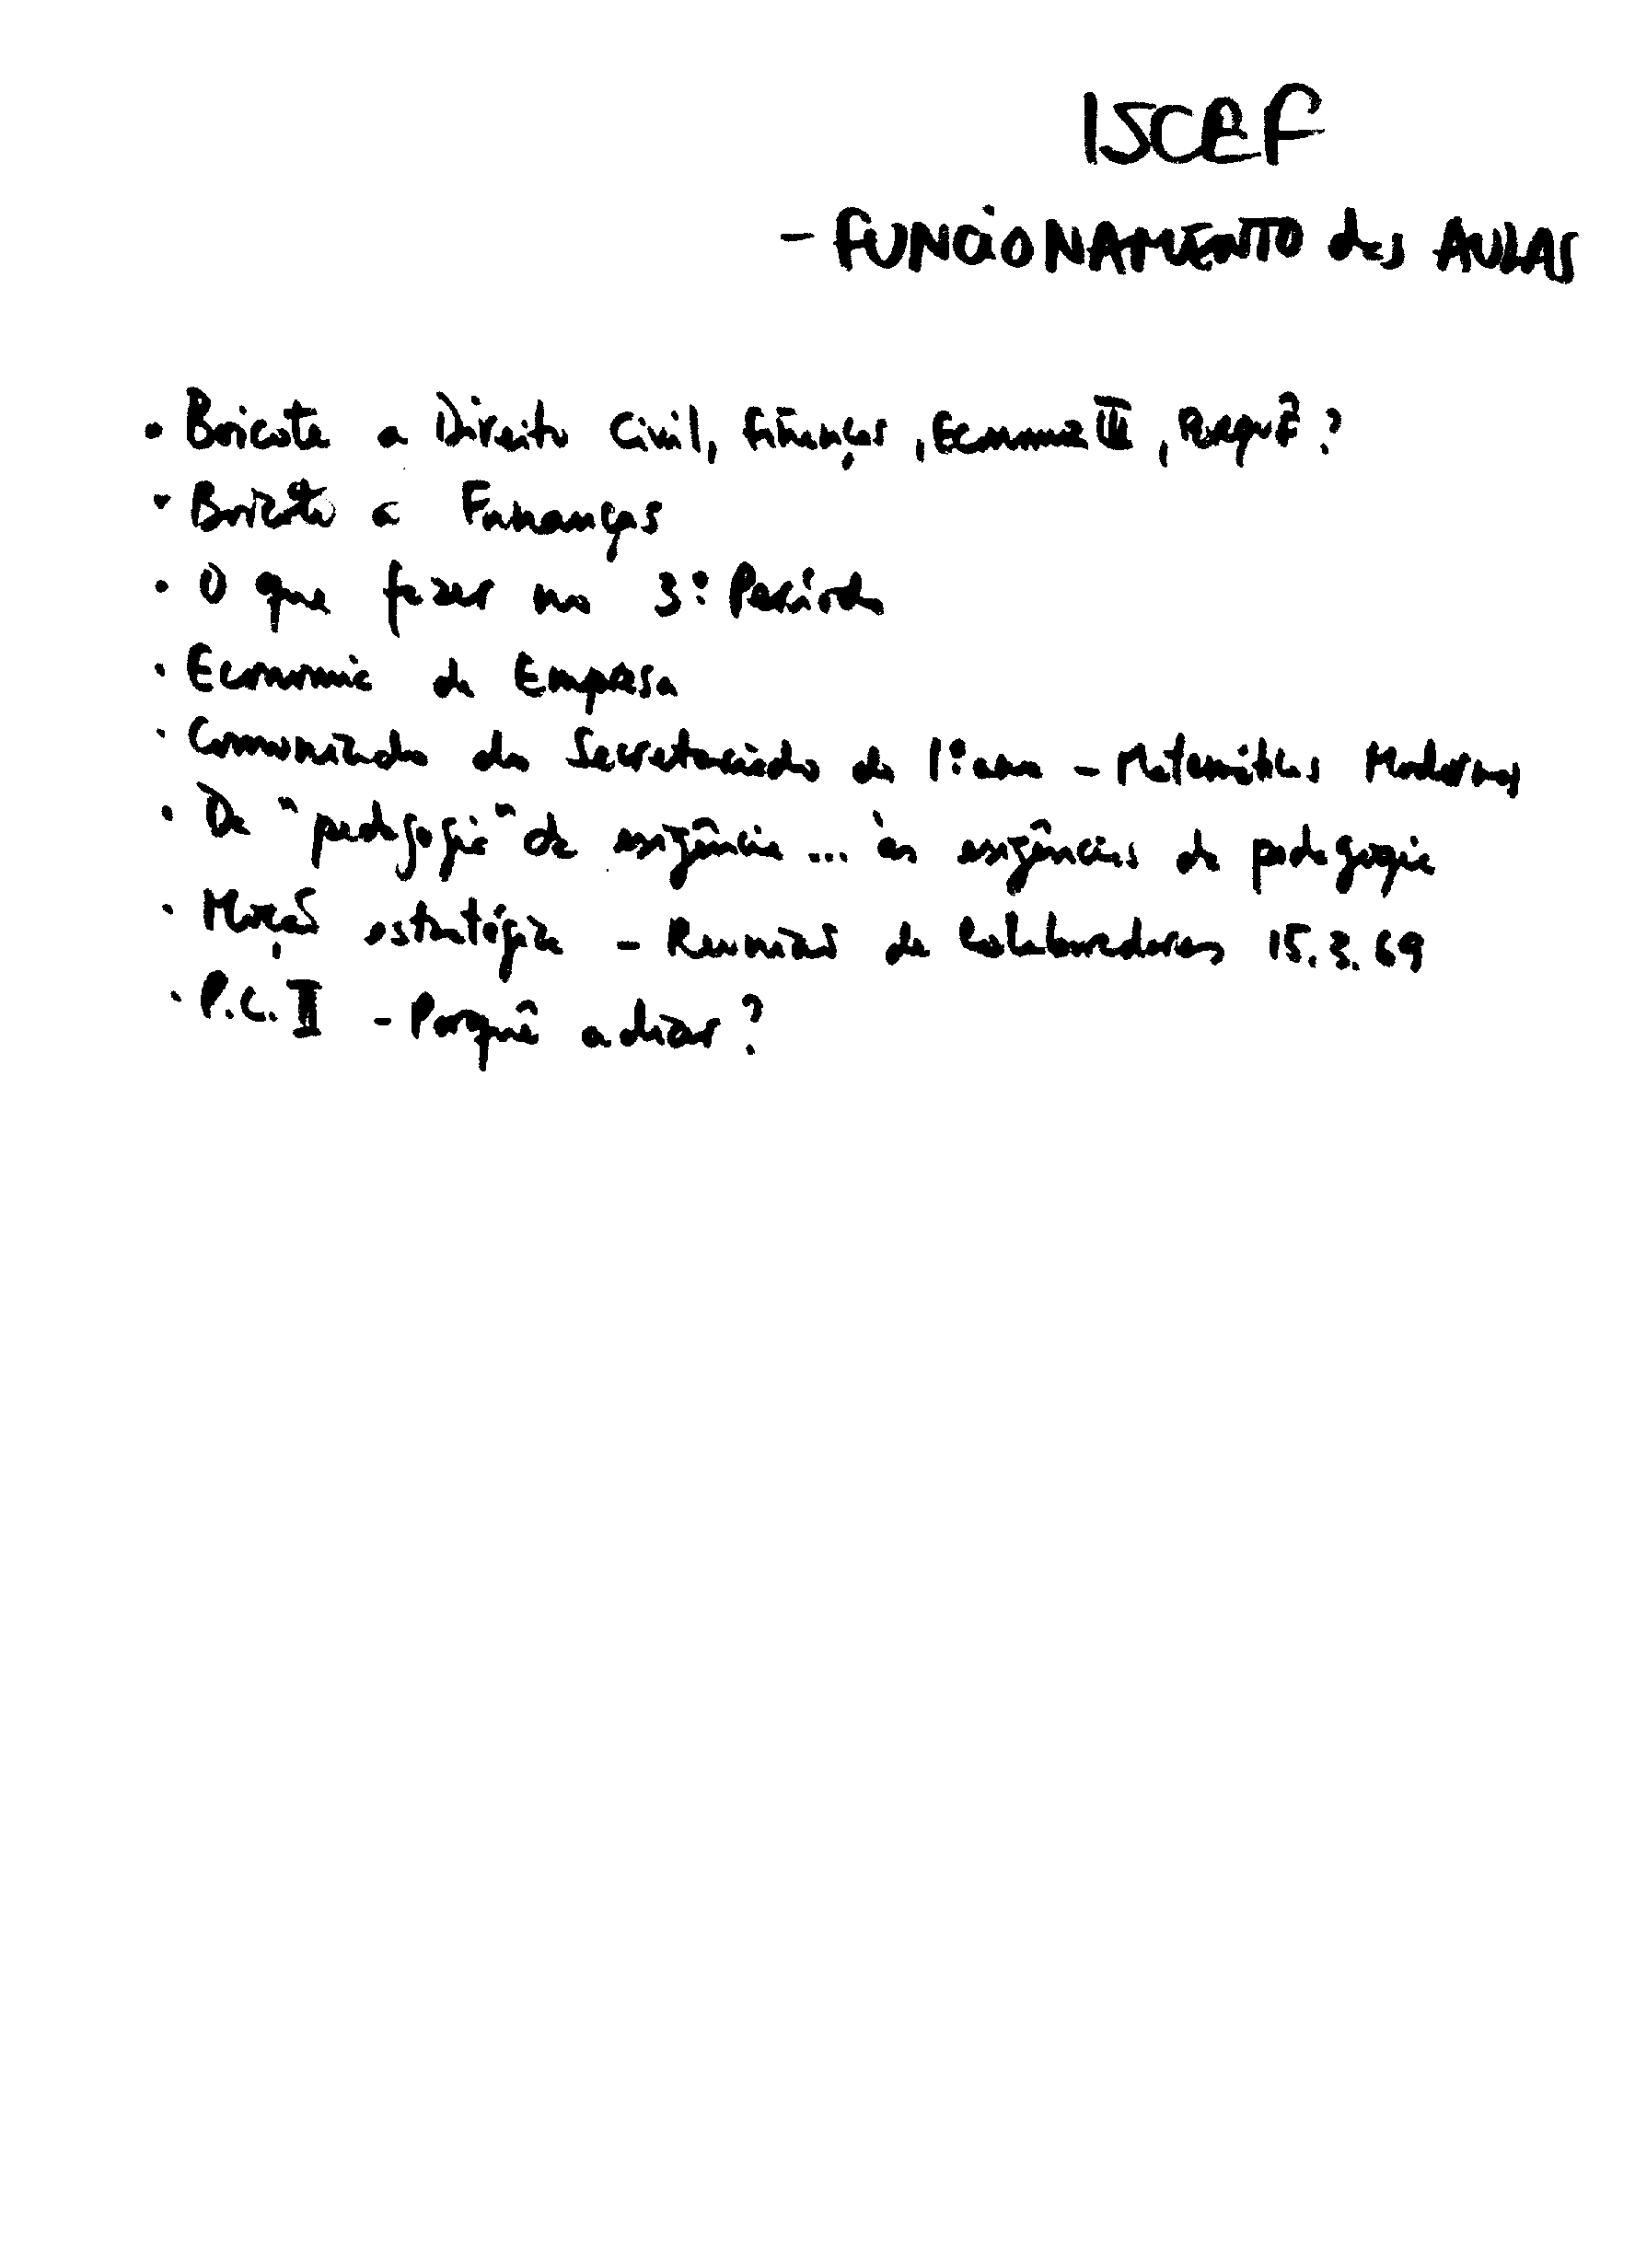 ISCEF
- FUNCIONAMENTO das AULAS
• Boicote a Direito Civil, Finanças, Economia III, Porquê?
• Boicote a Finanças
• O que fazer no 3º Período
• Economia da Empresa
• Comunicado do Secretariado do 1º ano - Matemáticas Modernas
• Da "pedagogia" da exigência ... às exigências da pedagogia
• Moção estratégica - Reunião de Colaboradores 15.3.69
• P.C. II - Porquê adiar?